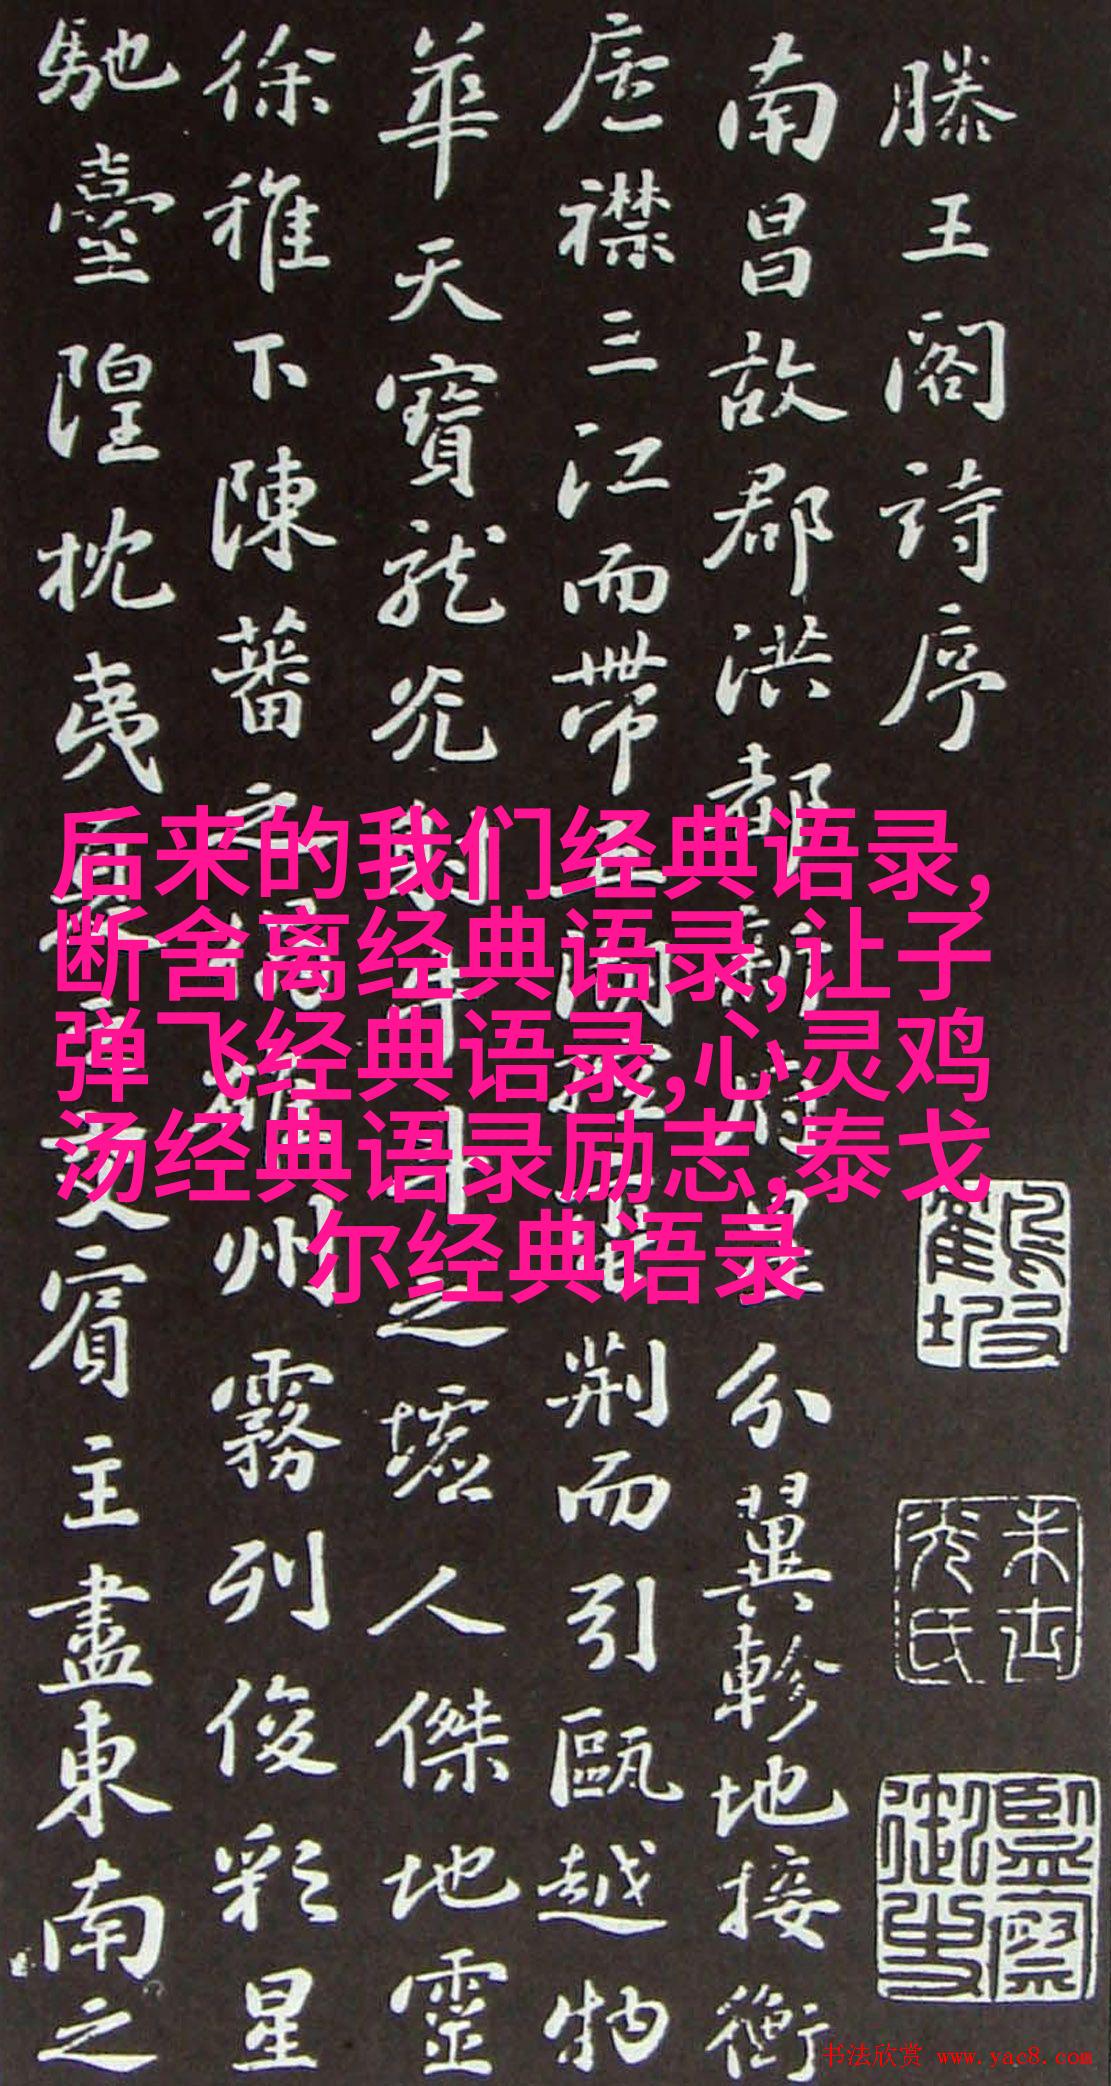 滕王閣詩序
南昌故郡洪都新府星分翼軫地接衡
廬襟三江而帶五湖控蠻荆而引甌越物
華天寶龍光射牛斗之墟人傑地靈
徐稚下陳蕃之榻雄州霧列俊彩星
馳臺隍枕夷夏之交賓主盡東南之
后来的我们经典语录,
断舍离经典语录,让子
弹飞经典语录,心灵鸡
汤经典语录励志,泰戈
尔经典语录
书法欣赏 www.yac8.com